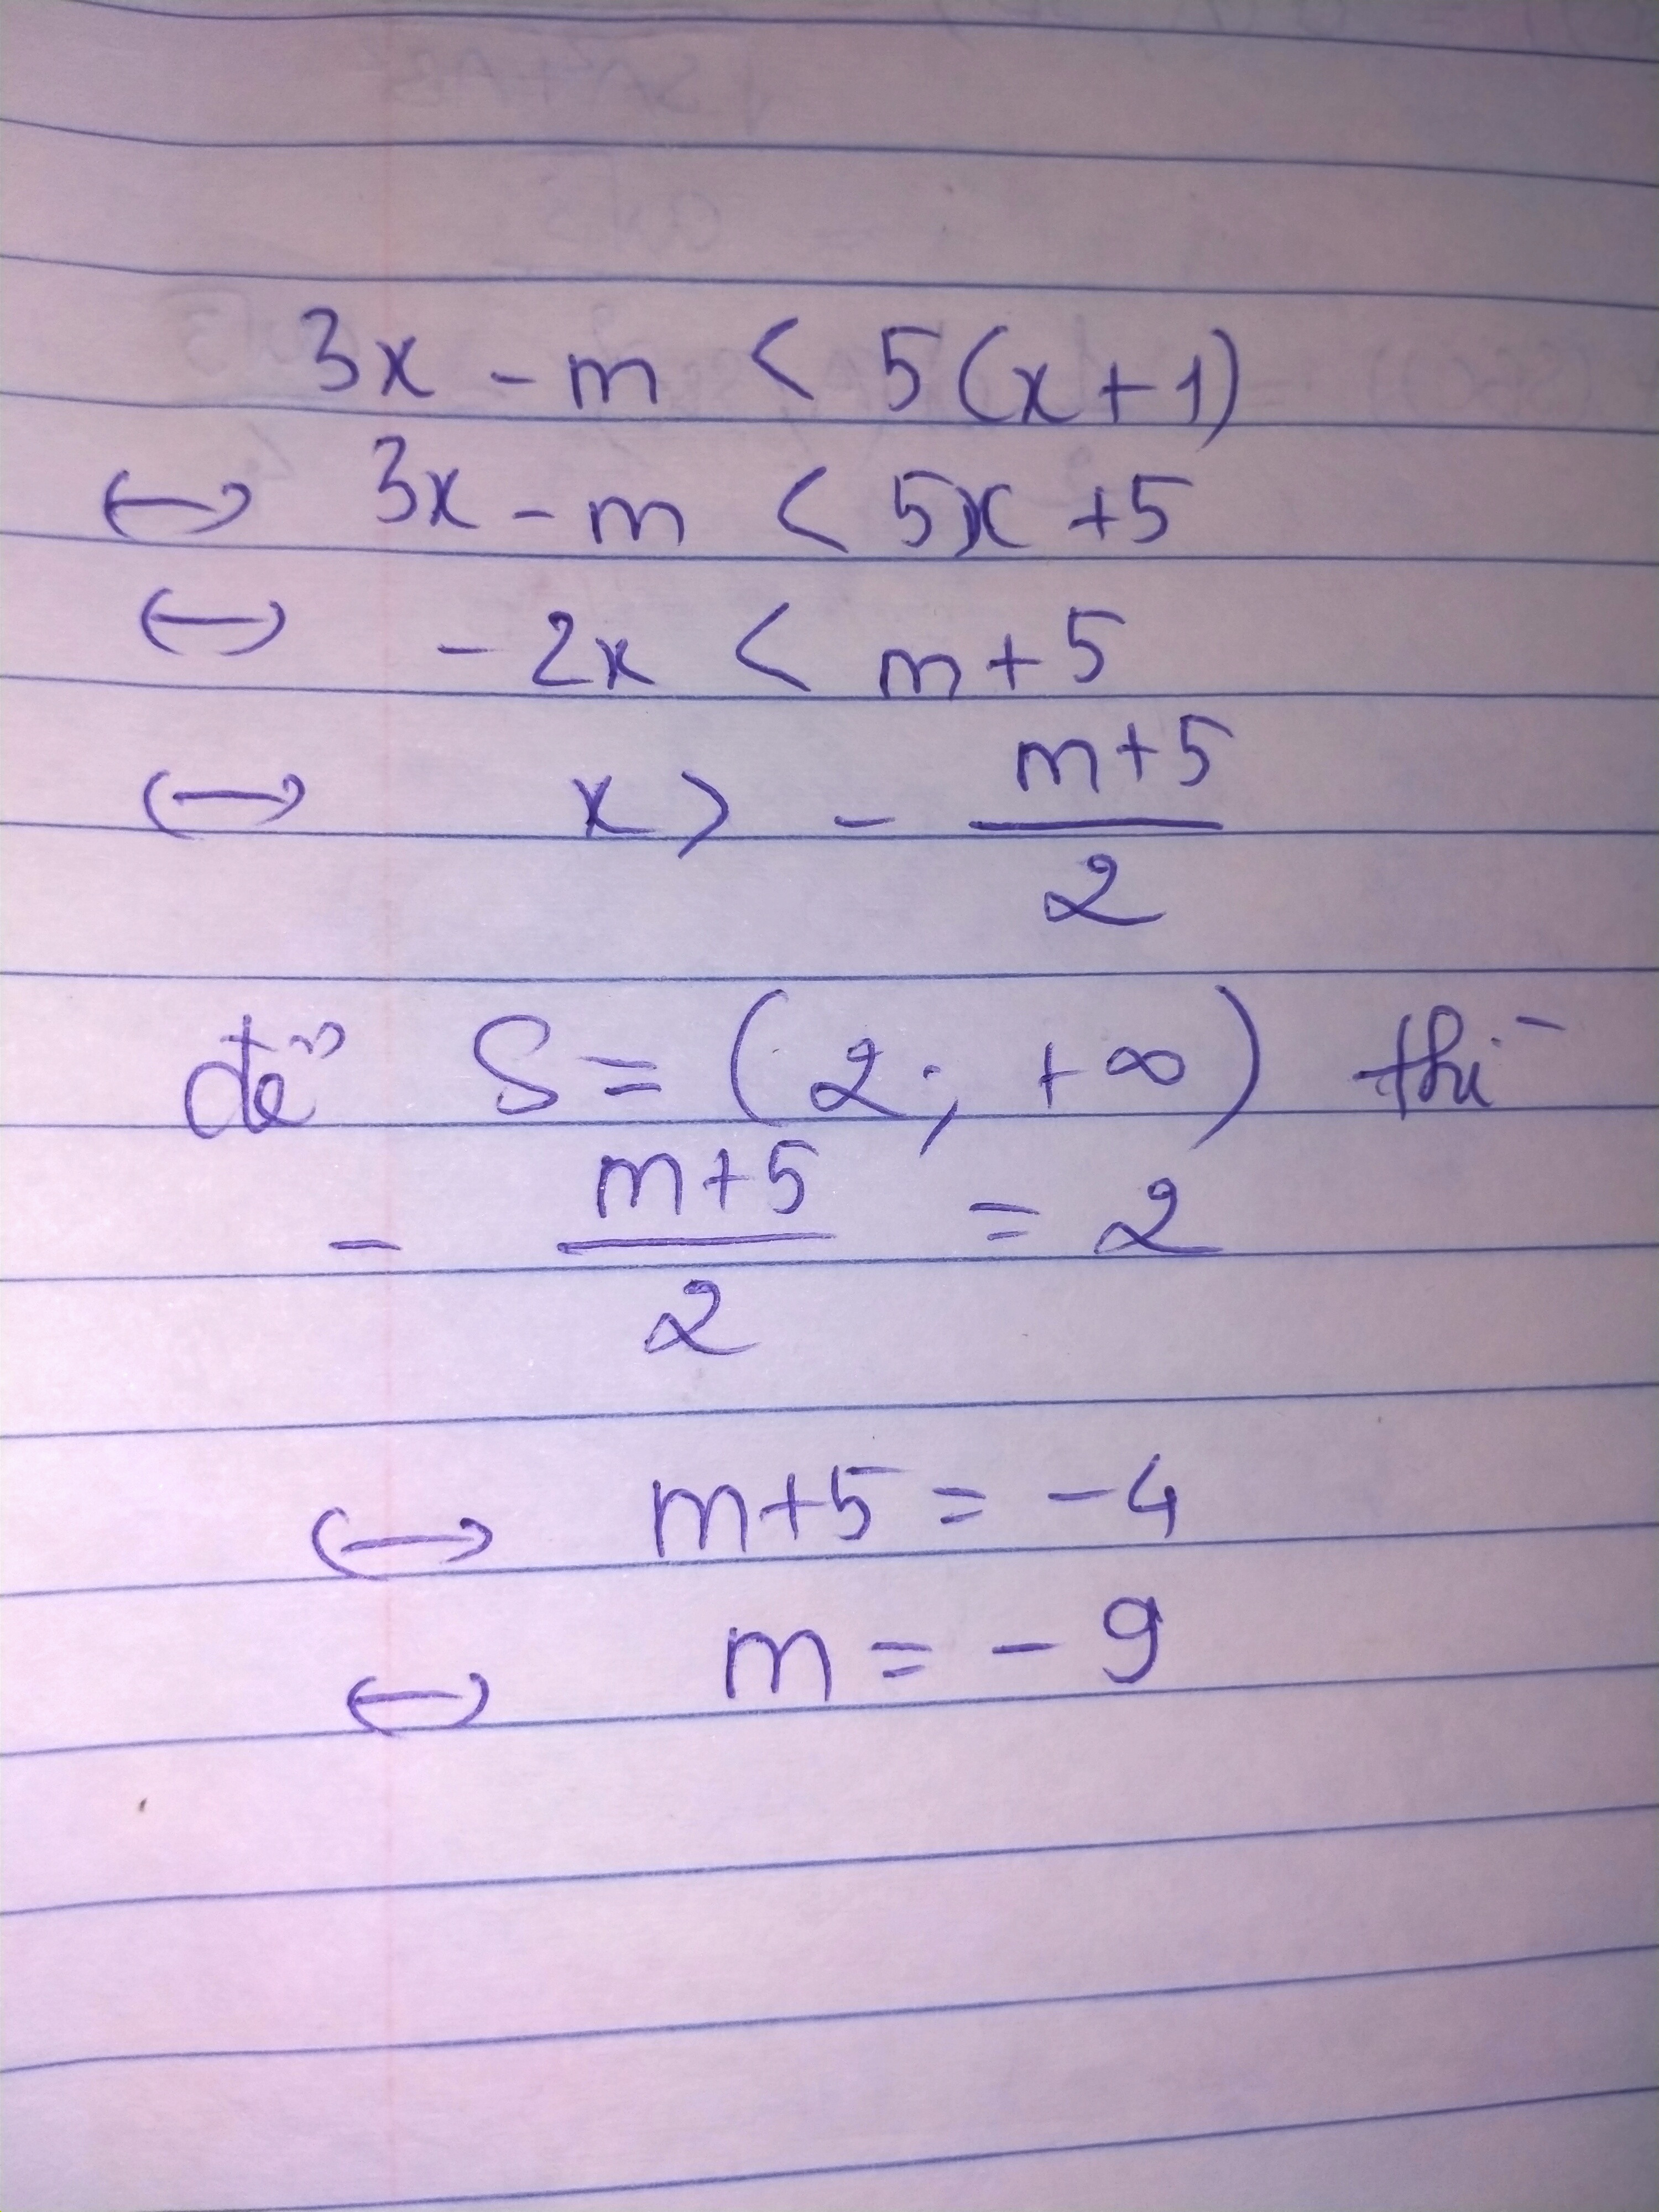 3x - m < 5(x+1)
↔ 3x - m < 5x +5
↔ - 2x < m+5
↔ x > - \frac{m+5}{2}
để S = (2; +∞) thì
- \frac{m+5}{2} = 2
↔ m+5 = -4
↔ m = - 9